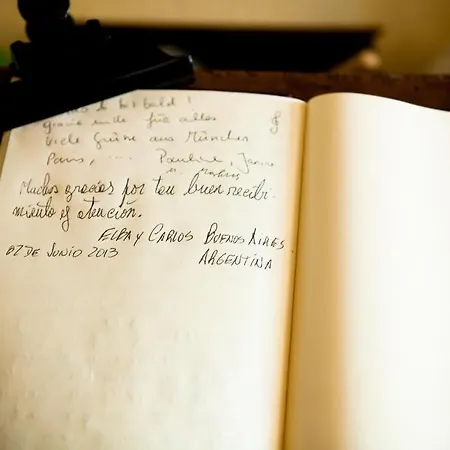 bis bald!
für alles
viele Grüße aus München
Paris, ... Pauline,
Muchas gracias por tan buen recibi-
miento y atención.
ELBA y CARLOS BUENOS AIRES.
02 DE JUNIO 2013 ARGENTINA